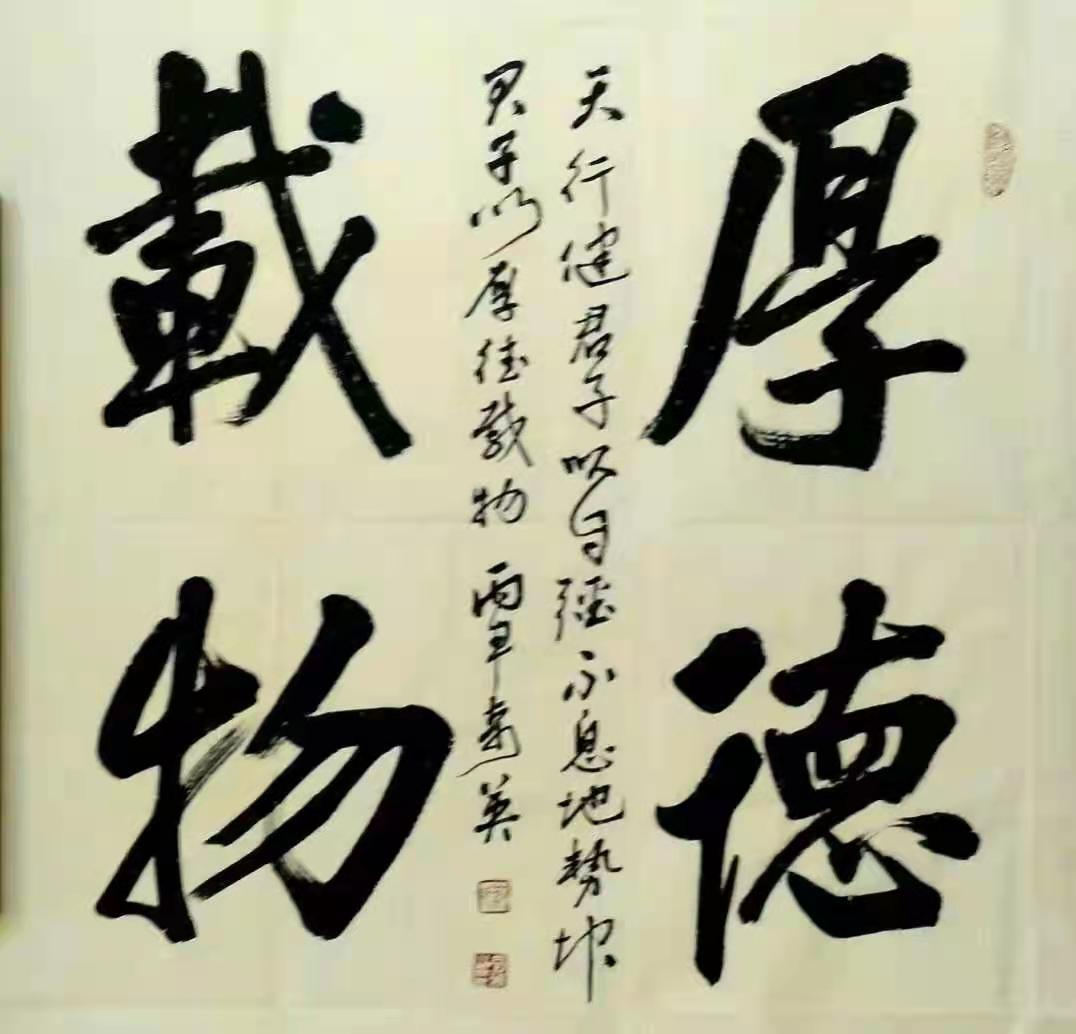 厚德
載物
天行健君子以自强不息地势坤
君子以厚德载物 覃寿英